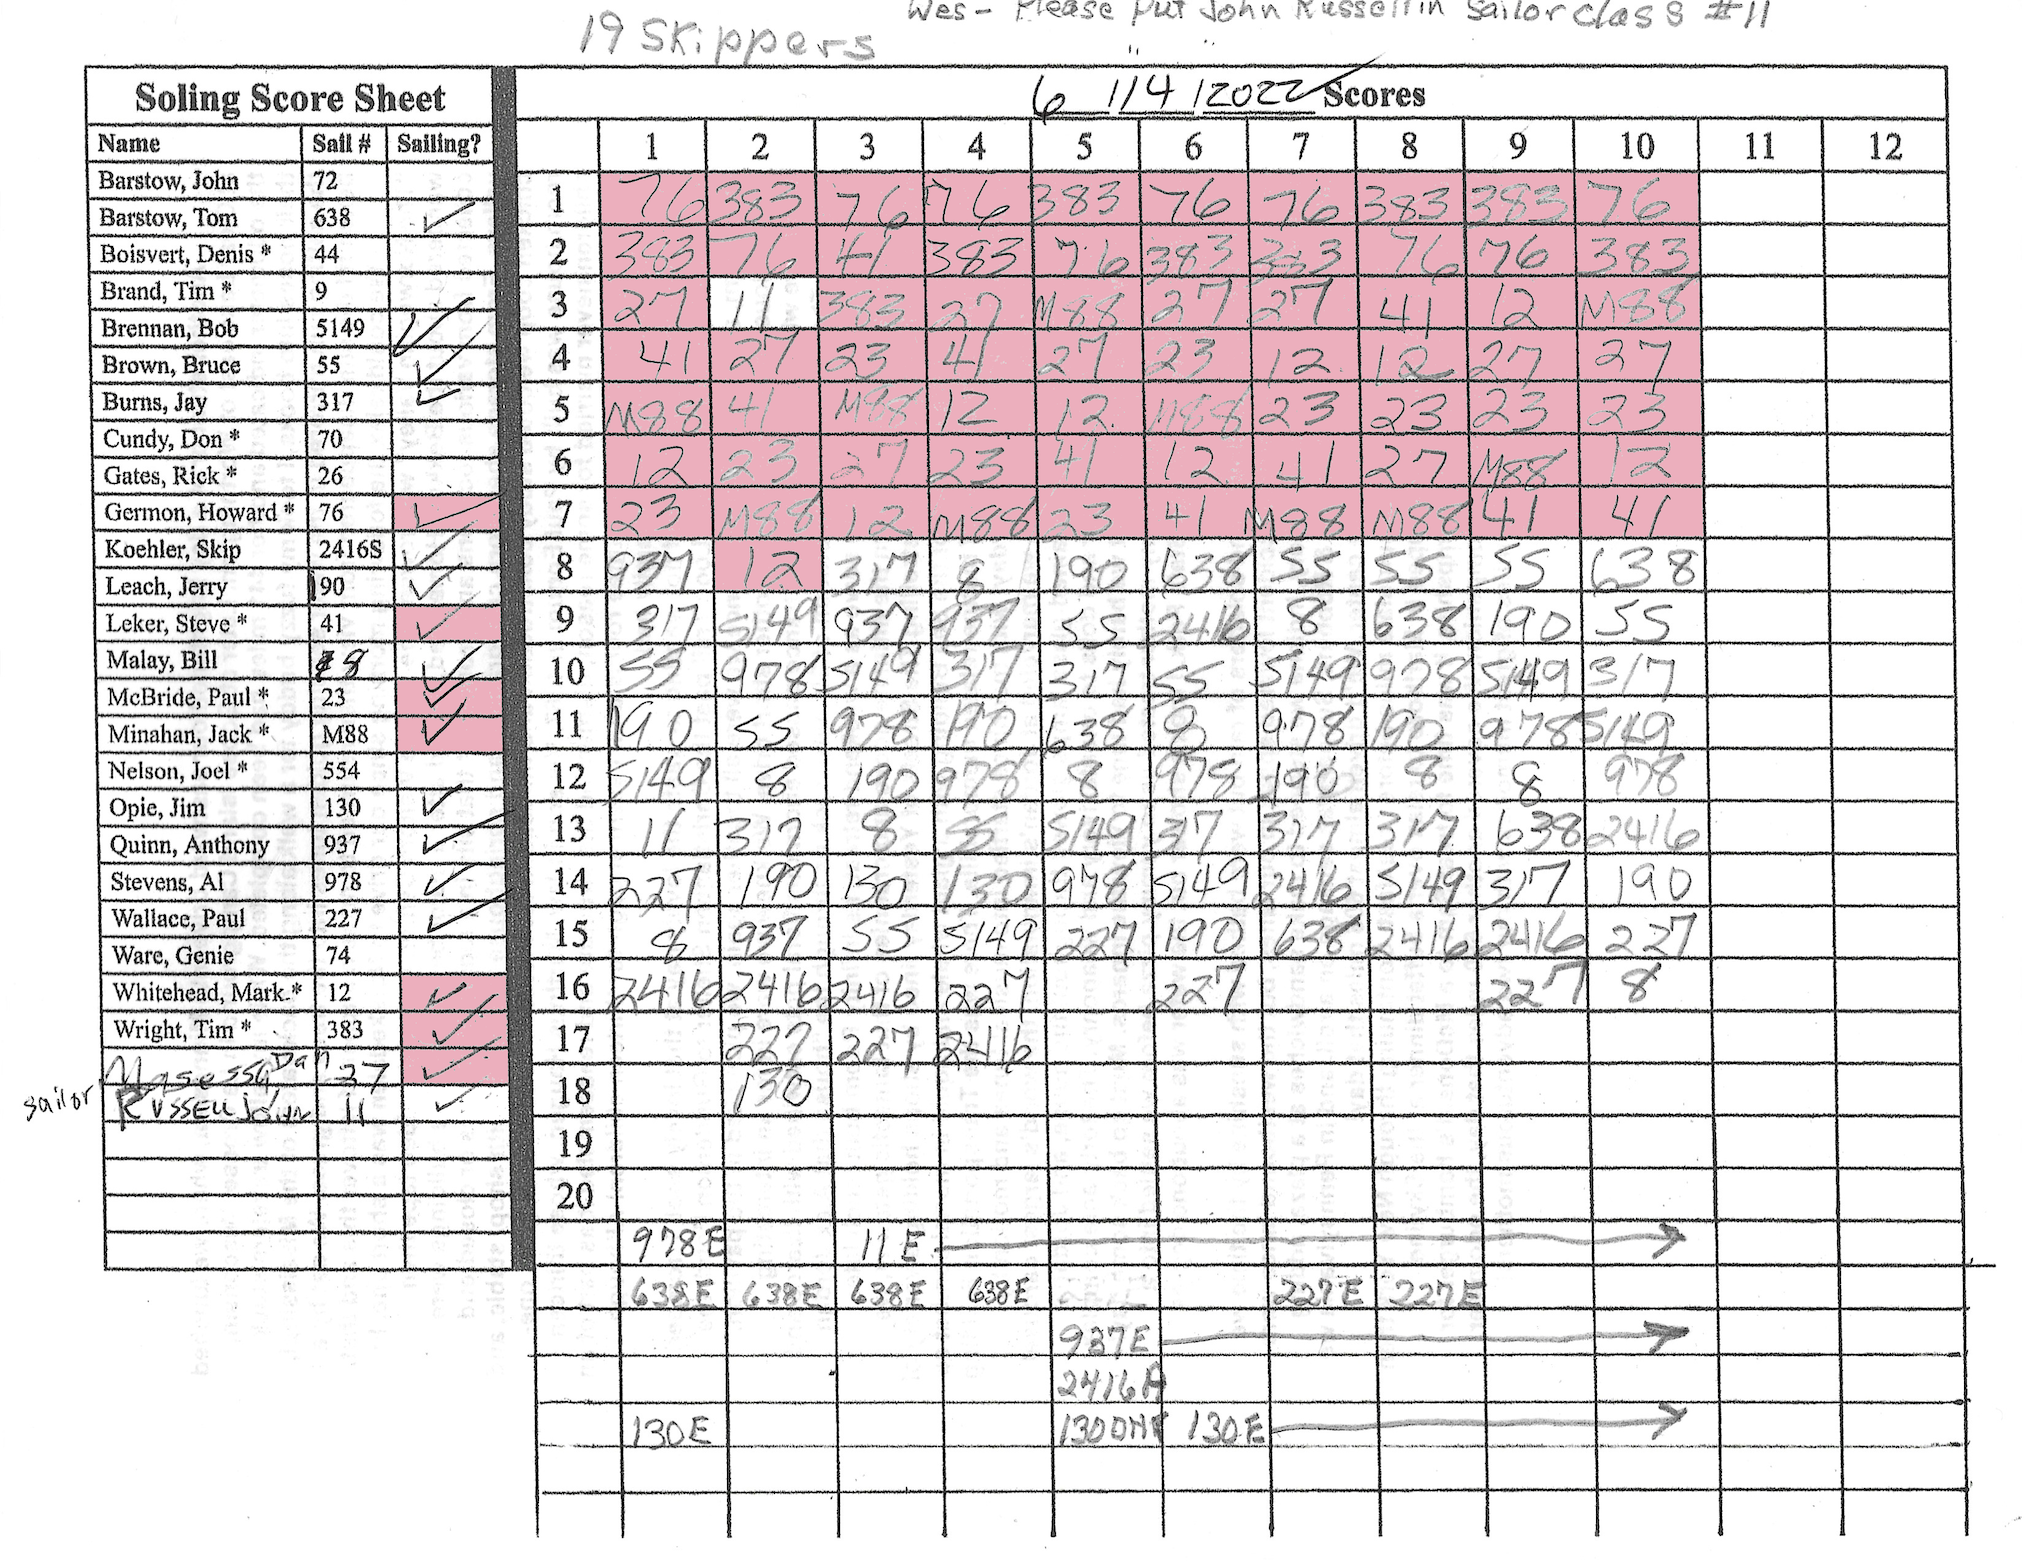 Wes - Please put John Russell in Sailor class #11
19 Skippers
Soling Score Sheet
6 / 14 / 2022 Scores
Name Sail # Sailing? 1 2 3 4 5 6 7 8 9 10 11 12
Barstow, John 72
Barstow, Tom 638 ✓
Boisvert, Denis * 44
Brand, Tim * 9
Brennan, Bob 5149 ✓
Brown, Bruce 55 ✓
Burns, Jay 317 ✓
Cundy, Don * 70
Gates, Rick * 26
Germon, Howard * 76 ✓
Koehler, Skip 2416S ✓
Leach, Jerry 190 ✓
Leker, Steve * 41 ✓
Malay, Bill 8 ✓
McBride, Paul * 23 ✓
Minahan, Jack * M88 ✓
Nelson, Joel * 554
Opie, Jim 130 ✓
Quinn, Anthony 937 ✓
Stevens, Al 978 ✓
Wallace, Paul 227 ✓
Ware, Genie 74
Whitehead, Mark * 12 ✓
Wright, Tim * 383 ✓
Dan 27 ✓
sailor Russell John 11 ✓
1 76 383 76 76 383 76 76 383 383 76
2 383 76 41 383 76 383 383 76 76 383
3 27 11 383 27 M88 27 27 41 12 M88
4 41 27 23 41 27 23 12 12 27 27
5 M88 41 M88 12 12 M88 23 23 23 23
6 12 23 27 23 41 12 41 27 M88 12
7 23 M88 12 M88 23 41 M88 M88 41 41
8 937 12 317 8 190 638 55 55 55 638
9 317 5149 937 937 55 2416 8 638 190 55
10 55 978 5149 317 317 55 5149 978 5149 317
11 190 55 978 190 638 8 978 190 978 5149
12 5149 8 190 978 8 978 190 8 8 978
13 11 317 8 55 5149 317 317 317 638 2416
14 227 190 130 130 978 5149 2416 5149 317 190
15 8 937 55 5149 227 190 638 2416 2416 227
16 2416 2416 2416 227 227 227 8
17 227 227 2416
18 130
19
20
978E 11E
638E 638E 638E 638E 227E 227E
937E
2416A
130E 130DNF 130E